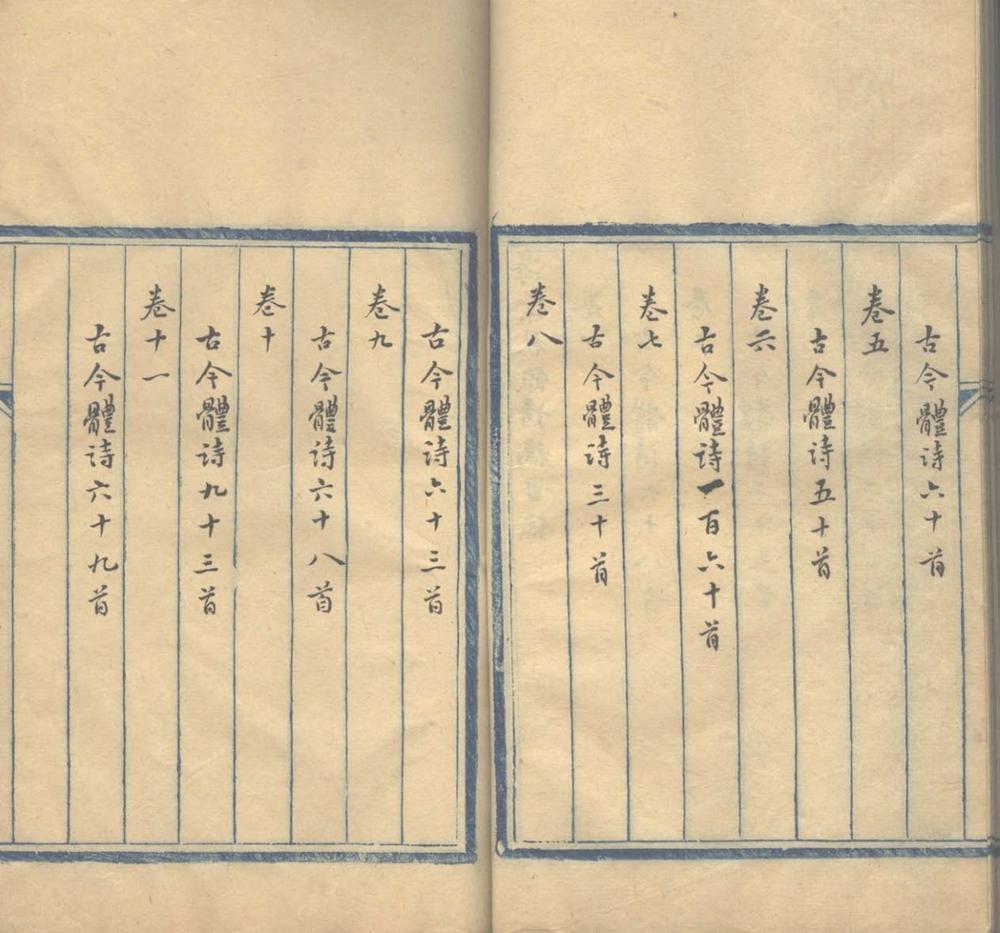 古今體詩六十首
卷五
古今體詩五十首
卷六
古今體詩一百六十首
卷七
古今體詩三十首
卷八
古今體詩六十三首
卷九
古今體詩六十八首
卷十
古今體詩九十三首
卷十一
古今體詩六十九首